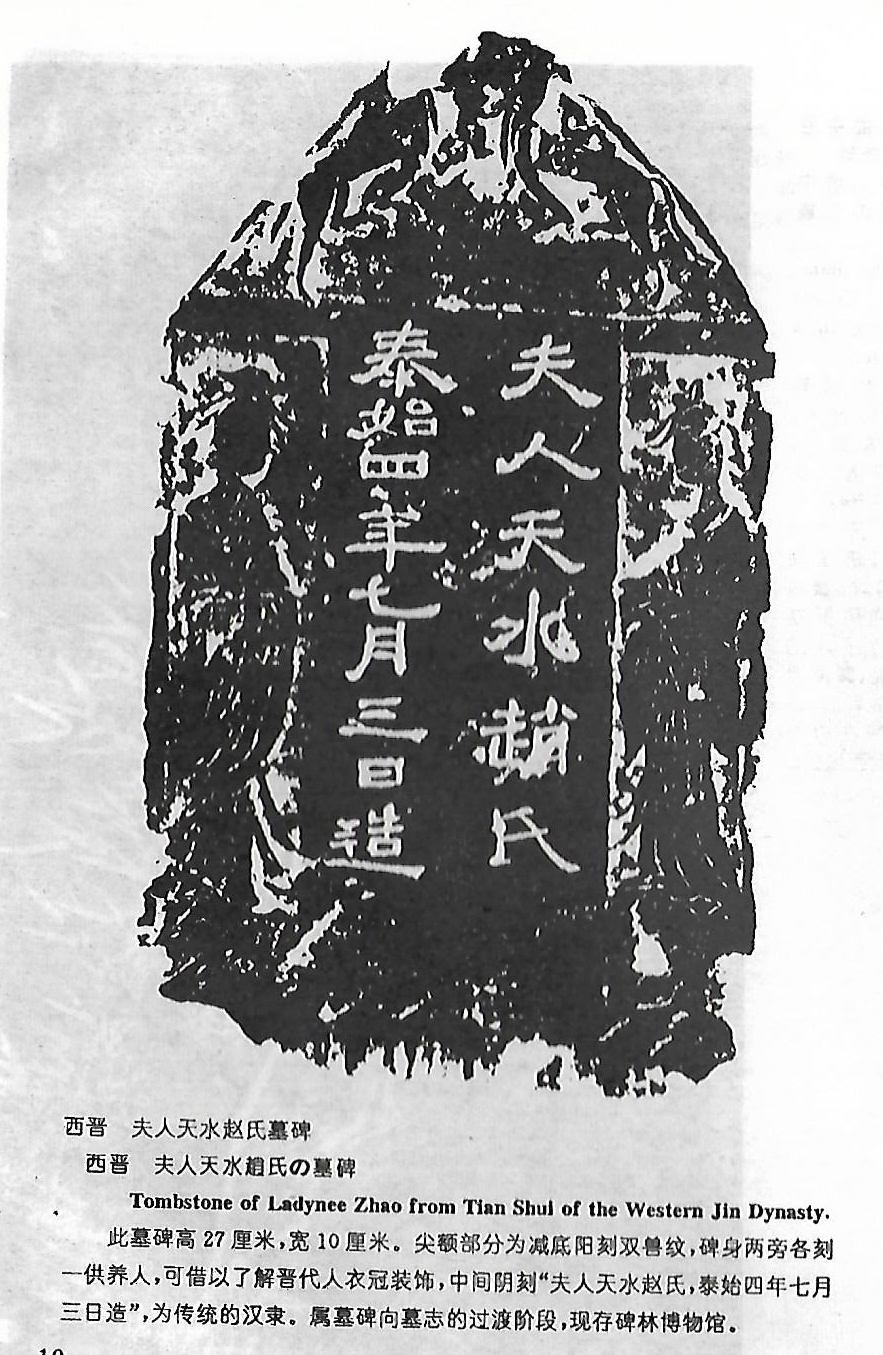 夫人天水趙氏
泰始四年七月三日造
西晋　夫人天水赵氏墓碑
西晋　夫人天水趙氏の墓碑
Tombstone of Ladynee Zhao from Tian Shui of the Western Jin Dynasty.
此墓碑高27厘米,宽10厘米。尖额部分为减底阳刻双兽纹,碑身两旁各刻
一供养人,可借以了解晋代人衣冠装饰,中间阴刻“夫人天水赵氏,泰始四年七月
三日造”,为传统的汉隶。属墓碑向墓志的过渡阶段,现存碑林博物馆。